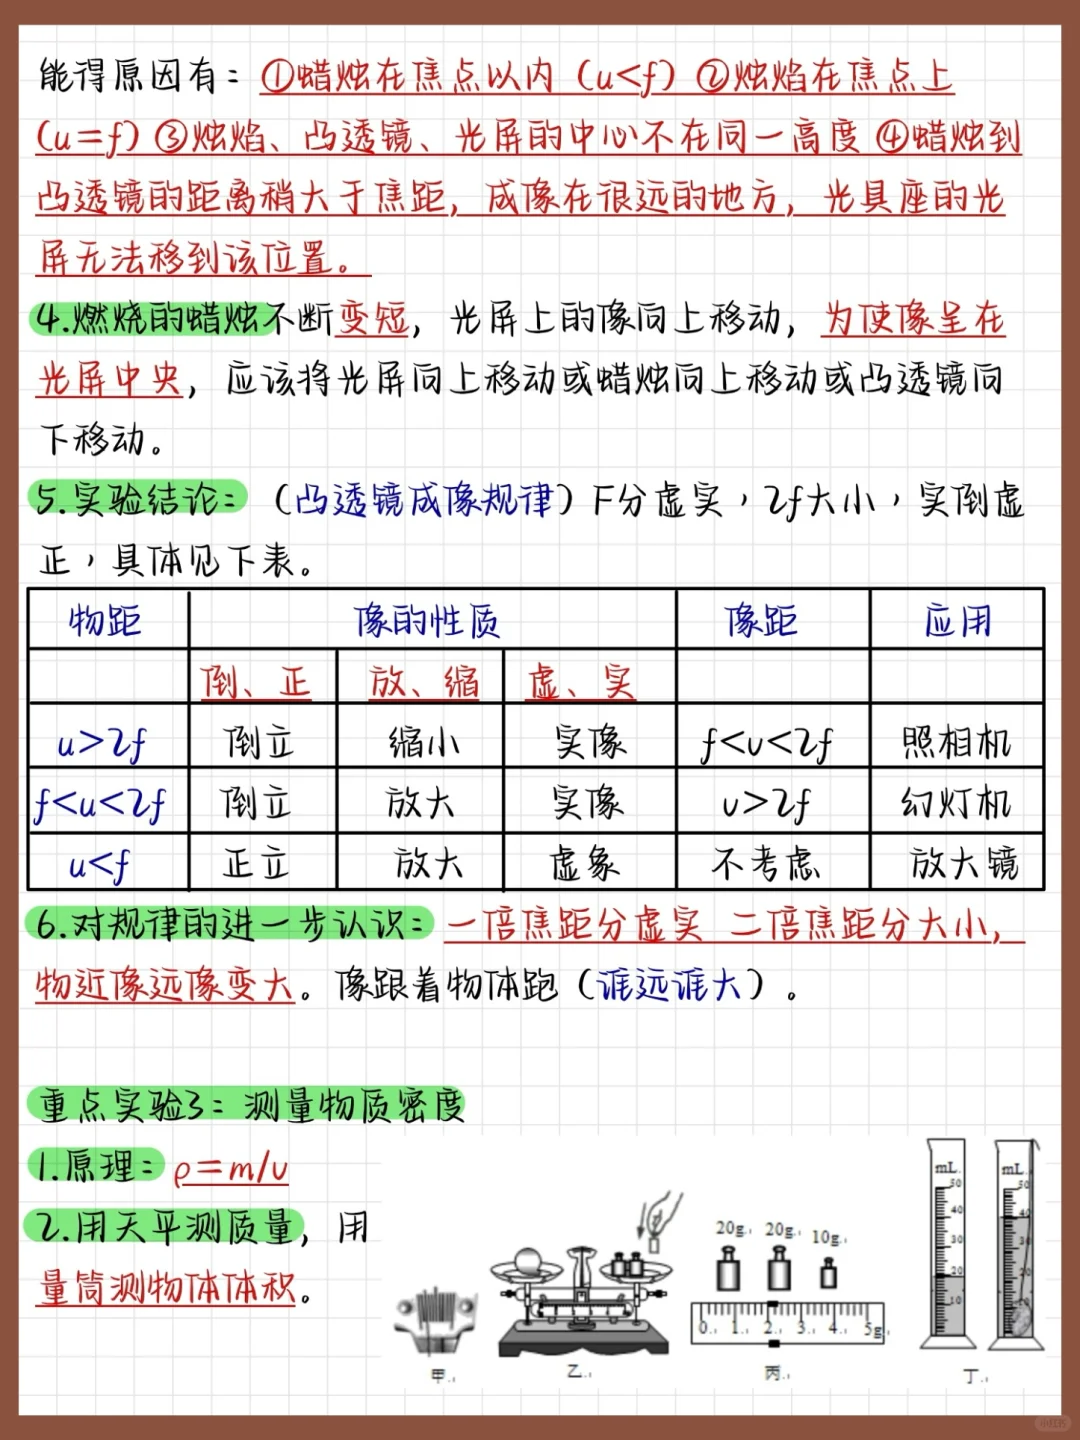 能得原因有：①蜡烛在焦点以内（u<f）②烛焰在焦点上
（u=f）③烛焰、凸透镜、光屏的中心不在同一高度 ④蜡烛到
凸透镜的距离稍大于焦距，成像在很远的地方，光具座的光
屏无法移到该位置。
4.燃烧的蜡烛不断变短，光屏上的像向上移动，为使像呈在
光屏中央，应该将光屏向上移动或蜡烛向上移动或凸透镜向
下移动。
5.实验结论：（凸透镜成像规律）F分虚实，2f大小，实倒虚
正，具体见下表。
物距 像的性质 像距 应用
倒、正 放、缩 虚、实
u>2f 倒立 缩小 实像 f<v<2f 照相机
f<u<2f 倒立 放大 实像 v>2f 幻灯机
u<f 正立 放大 虚象 不考虑 放大镜
6.对规律的进一步认识：一倍焦距分虚实 二倍焦距分大小，
物近像远像变大。像跟着物体跑（谁远谁大）。
重点实验3：测量物质密度
1.原理：ρ=m/v
2.用天平测质量，用
量筒测物体体积。
20g 20g 10g
0 1 2 3 4 5g
mL 50 40 30 20 10
mL 50 40 30 20 10
甲 乙 丙 丁
小红书